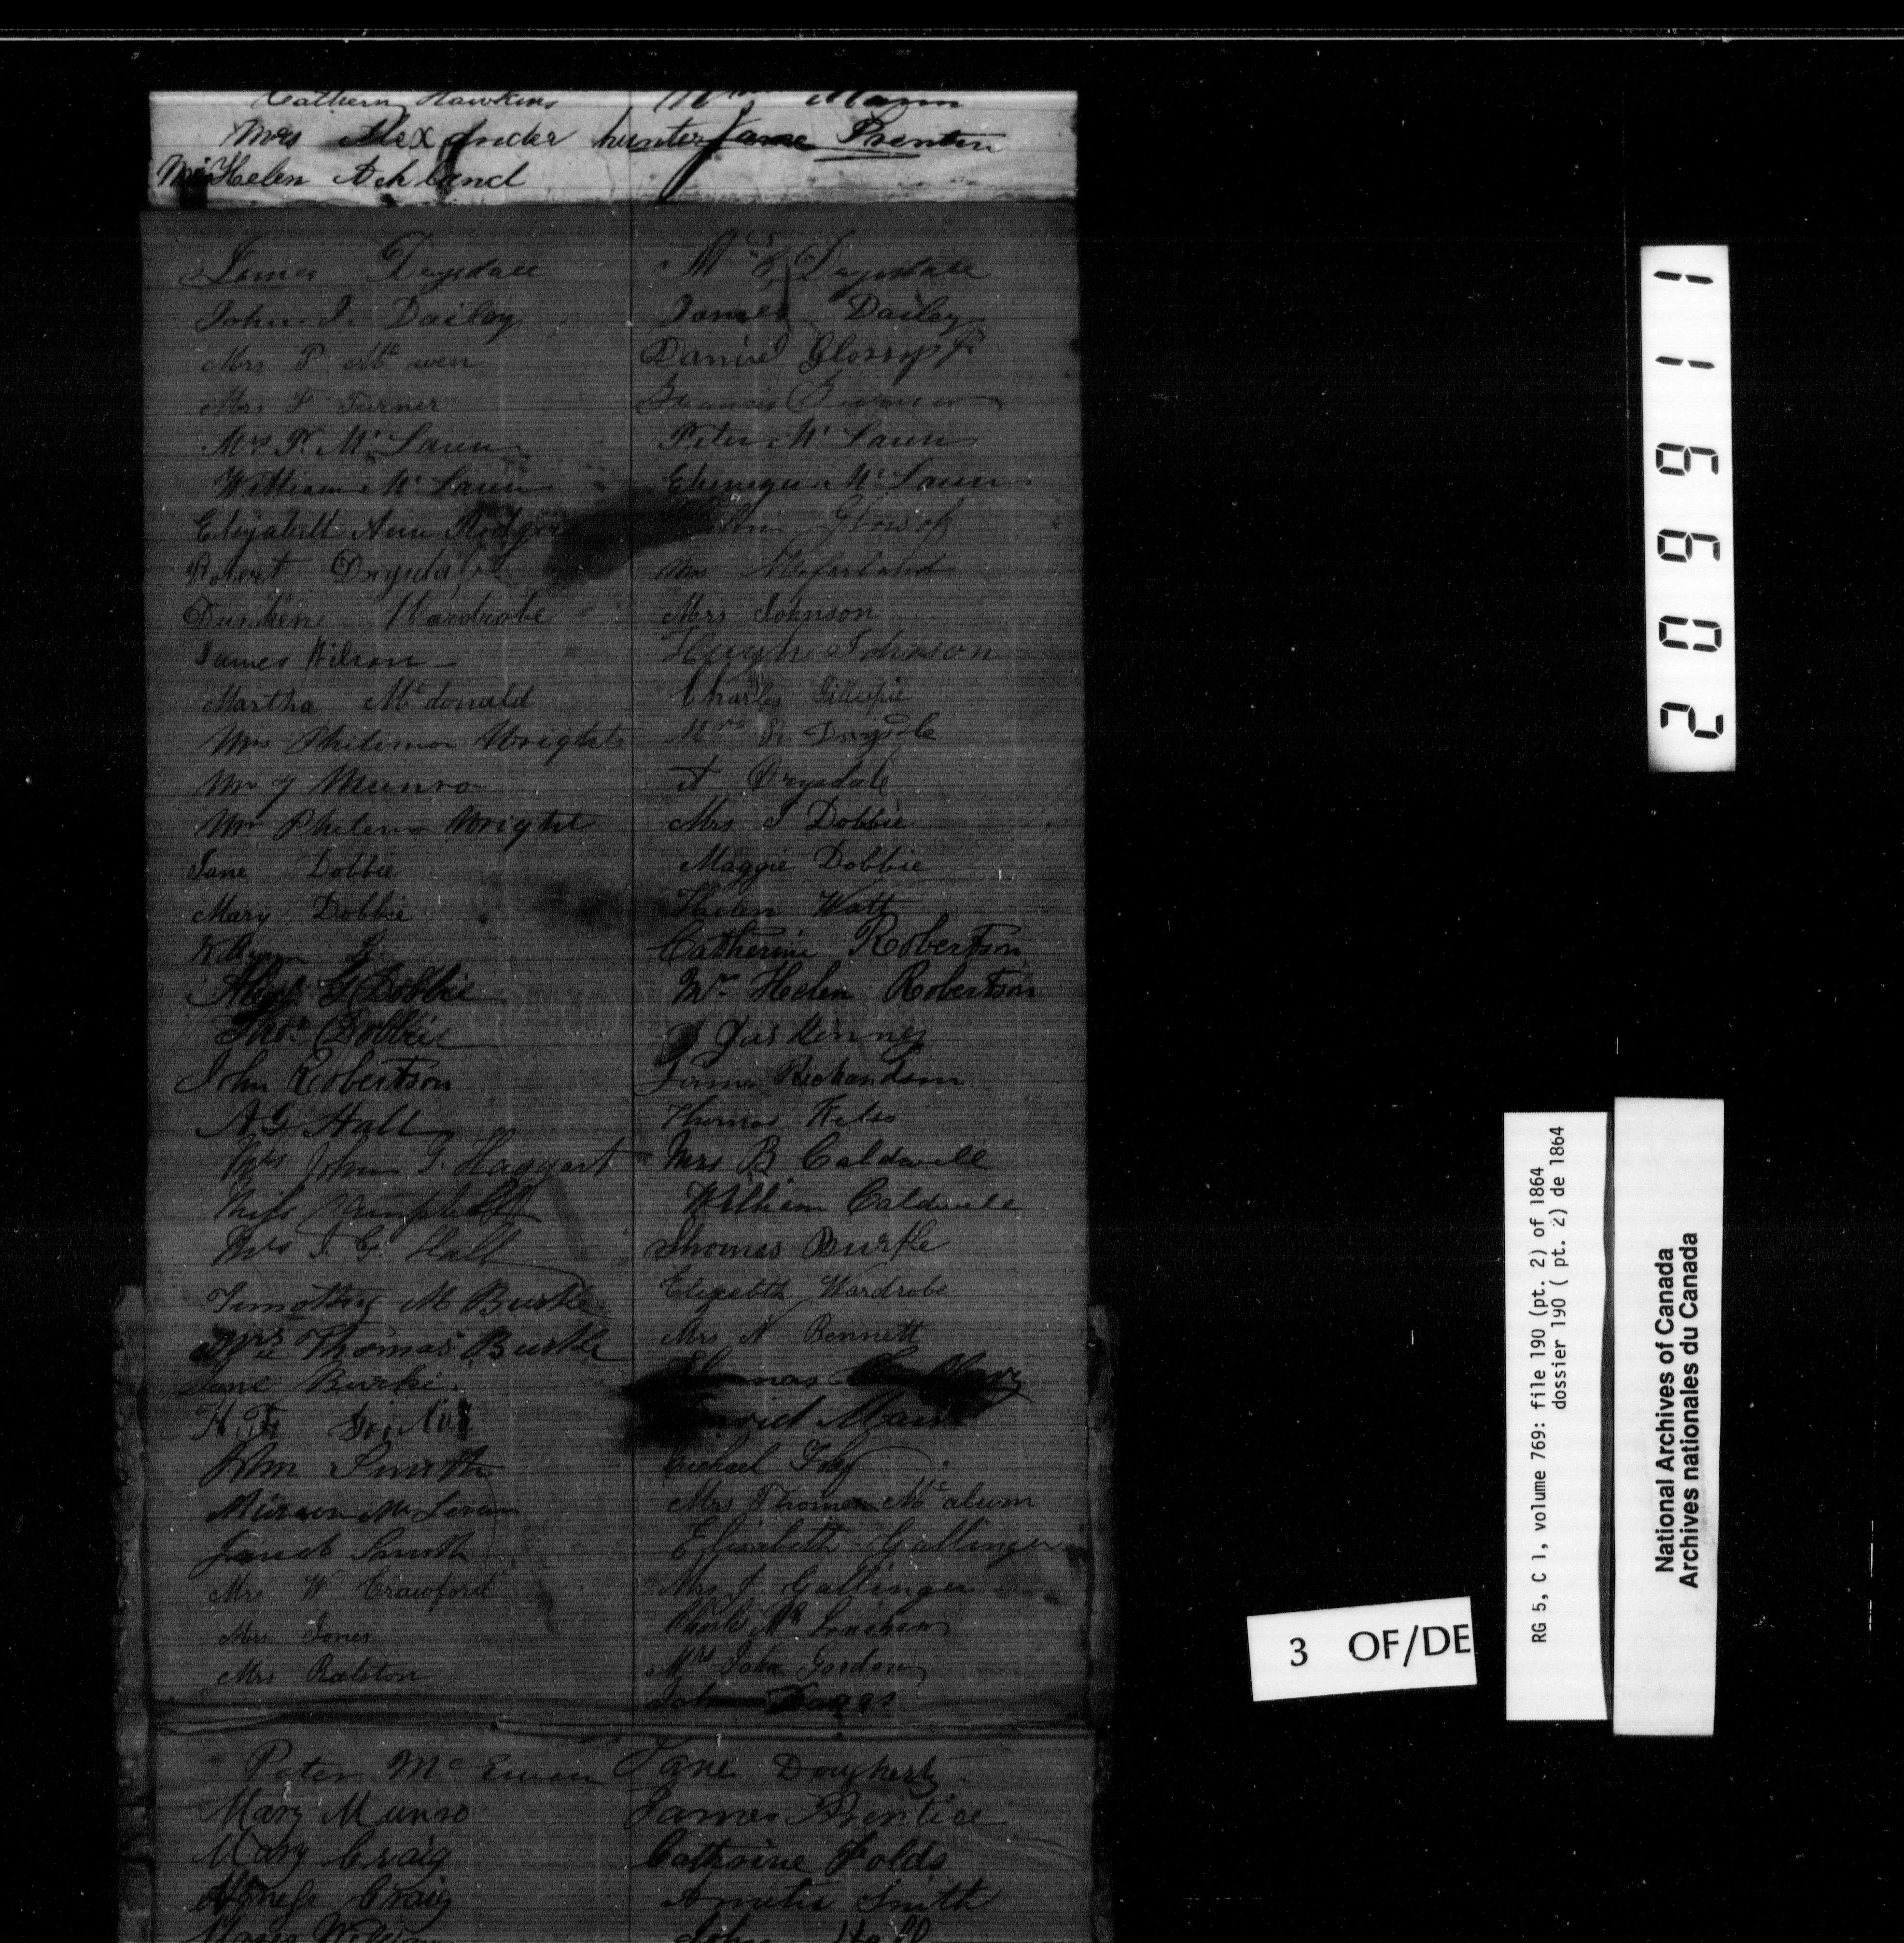 Cathern Hawkins Mann
Mrs Alexander hunter Jane Prentice
Helen Ackland
James Drysdale Mrs Drysdale
John J. Dailey James Dailey
Mrs P Mc uen Daniel Glossop Jr
Mrs F Turner Francis
Mrs P. Mc Laren Peter Mc Laren
William Mc Laren Ebenezer Mc Laren
Elizabeth Ann Rodgers Glossop
Robert Drysdale Mrs Mcfarland
Dunken Wardrobe Mrs Johnson
James Wilson Hugh Johnson
Martha Mcdonald Charles Gillespie
Mrs Philemon Wright Mrs R Drysdle
Mr J Munro A Drysdale
Mr Philemon Wright Mrs J Dobbie
Jane Dobbie Maggie Dobbie
Mary Dobbie Helen Watt
William D. Catherine Robertson
Alexr G Dobbie Mrs Helen Robertson
Thos. Dobbie Jas Kenney
John Robertson James Richardson
A G Hall Thomas Kelso
Mrs John G. Haggart Mrs B Caldwell
Miss Campbell William Caldwell
Mrs J. G. Hall Thomas Burke
Timothy M Burke Elizebth Wardrobe
Mrs Thomas Burke Mrs N Bennett
Jane Burke
David Mann
John Smith Michael Foley
Mc Laren Mrs Thomas Mc alum
Janet Smith Elisabeth Gallinger
Mrs W Crawford Mrs J Gallinger
Mrs Jones Charls
Mrs Ralston Mrs John Gordon
John
Peter McEwen Jane Dougherty
Mary Munro James Prentice
Mary Craig Cathrine Folds
Agness Craig Smith
John Hall
2 0 6 6 1 1
3 OF/DE
RG 5, C 1, volume 769: file 190 (pt. 2) of 1864
dossier 190 ( pt. 2) de 1864
National Archives of Canada
Archives nationales du Canada